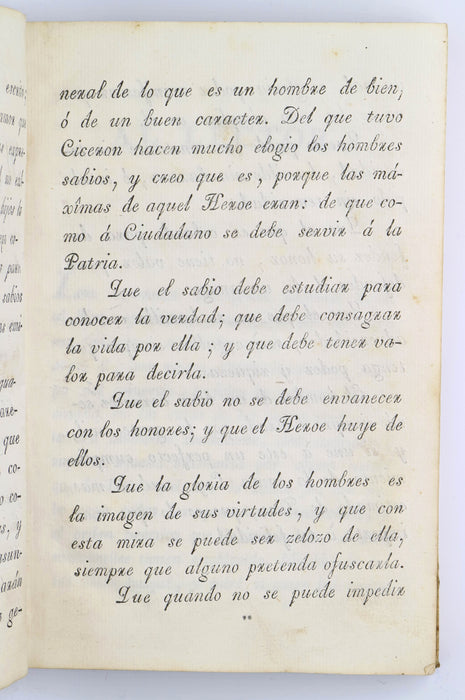 escrito;
neral de lo que es un hombre de bien,
ó de un buen caracter. Del que tuvo
Ciceron hacen mucho elogio los hombres
sabios, y creo que es, porque las má-
xîmas de aquel Heroe eran: de que co-
mo á Ciudadano se debe servir á la
Patria.
Que el sabio debe estudiar para
conocer la verdad; que debe consagrar
la vida por ella; y que debe tener va-
lor para decirla.
Que el sabio no se debe envanecer
con los honores; y que el Heroe huye de
ellos.
Que la gloria de los hombres es
la imagen de sus virtudes, y que con
esta mira se puede ser zelozo de ella,
siempre que alguno pretenda ofuscarla.
Que quando no se puede impedir
**